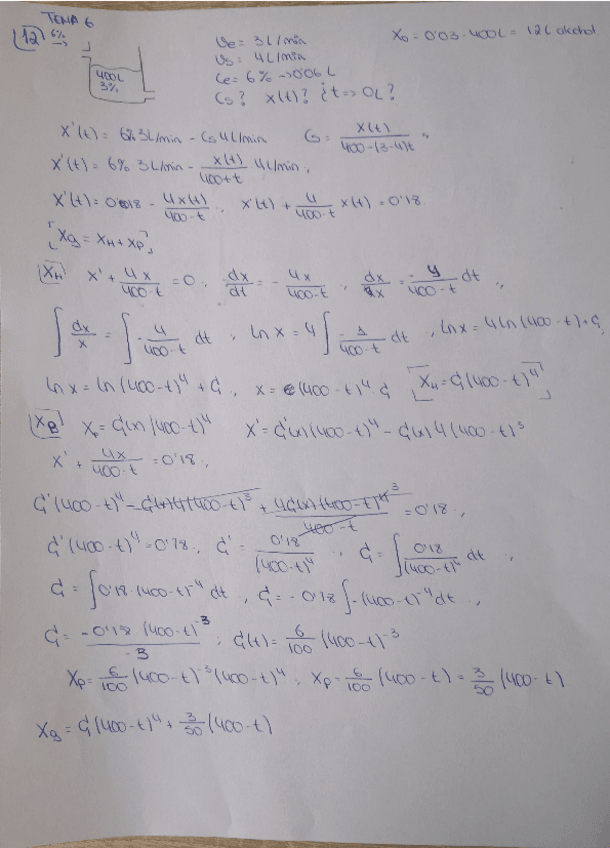 TEMA 6
12 6%
400L
3%
Ve = 3 L/min
Vs = 4 L/min
Ce = 6% -> 0'06 L
Cs? x(t)? ¿t => 0L?
X0 = 0'03 · 400L = 12L alcohol
X'(t) = 6% 3L/min - Cs 4L/min Cs = x(t) / 400-(3-4)t
X'(t) = 6% 3L/min - x(t) / 400+t 4L/min
X'(t) = 0'18 - 4x(t) / 400-t , x'(t) + 4 / 400-t x(t) = 0'18
[Xg = XH + XP]
XH X' + 4x / 400-t = 0 , dx/dt = - 4x / 400-t , dx / x = -4 / 400-t dt
∫ dx/x = ∫ - 4 / 400-t dt , ln x = 4 ∫ - 1 / 400-t dt , ln x = 4 ln (400-t) + C,
ln x = ln (400-t)^4 + C, x = (400-t)^4 · C [XH = C(400-t)^4]
XP Xp = C(x) (400-t)^4 X' = C'(x) (400-t)^4 - C(x) 4 (400-t)^3
X' + 4x / 400-t = 0'18
C'(400-t)^4 - C(x) 4(400-t)^3 + 4C(x)(400-t)^4 / 400-t = 0'18
C'(400-t)^4 = 0'18 , C' = 0'18 / (400-t)^4 , C = ∫ 0'18 / (400-t)^4 dt
C = ∫ 0'18 · (400-t)^-4 dt , C = -0'18 ∫ -(400-t)^-4 dt
C = -0'18 (400-t)^-3 / -3 ; C(t) = 6/100 (400-t)^-3
Xp = 6/100 (400-t)^-3 (400-t)^4 , Xp = 6/100 (400-t) = 3/50 (400-t)
Xg = C(400-t)^4 + 3/50 (400-t)